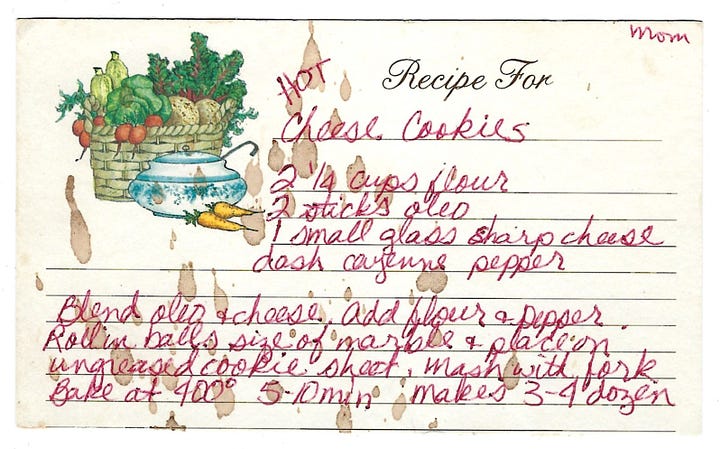 mom
HOT
Recipe For
Cheese Cookies
2 1/4 cups flour
2 sticks oleo
1 small glass sharp cheese
dash cayenne pepper
Blend oleo & cheese. add flour & pepper.
Roll in balls size of marble & place on
ungreased cookie sheet, mash with fork
Bake at 400° 5-10 min makes 3-4 dozen